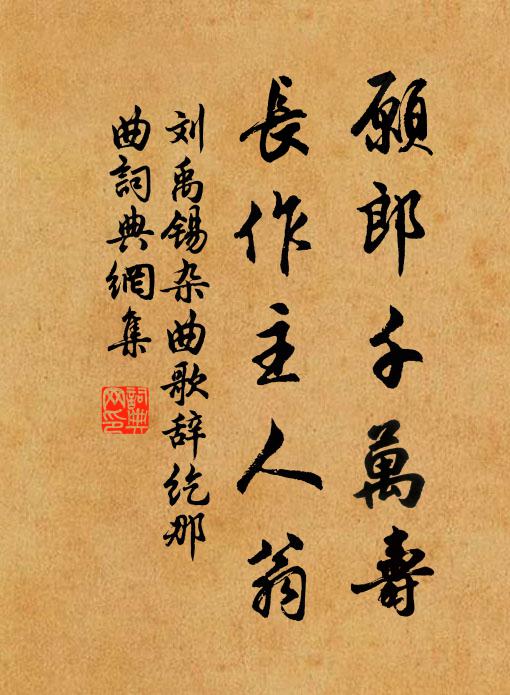 願郎千萬壽
長作主人翁
刘禹锡杂曲歌辞纥那
曲詞典網集
詞典
网印